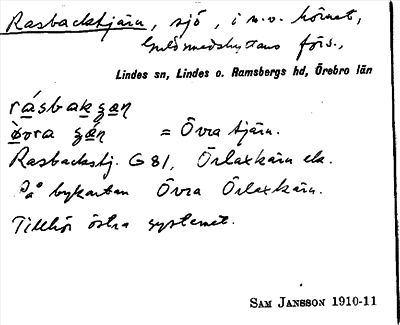 Rasbackstjärn, sjö, i n.v. hörnet,
Guldsmedshyttans förs.,
Lindes sn, Lindes o. Ramsbergs hd, Örebro län
råsbakʂən
òvra ʂän = Övra tjärn.
Rasbackstj. G 81, Örlaxkärn ek.
På bykartan Övra Örlaxkärn.
Tillhör östra systemet.
SAM JANSSON 1910-11